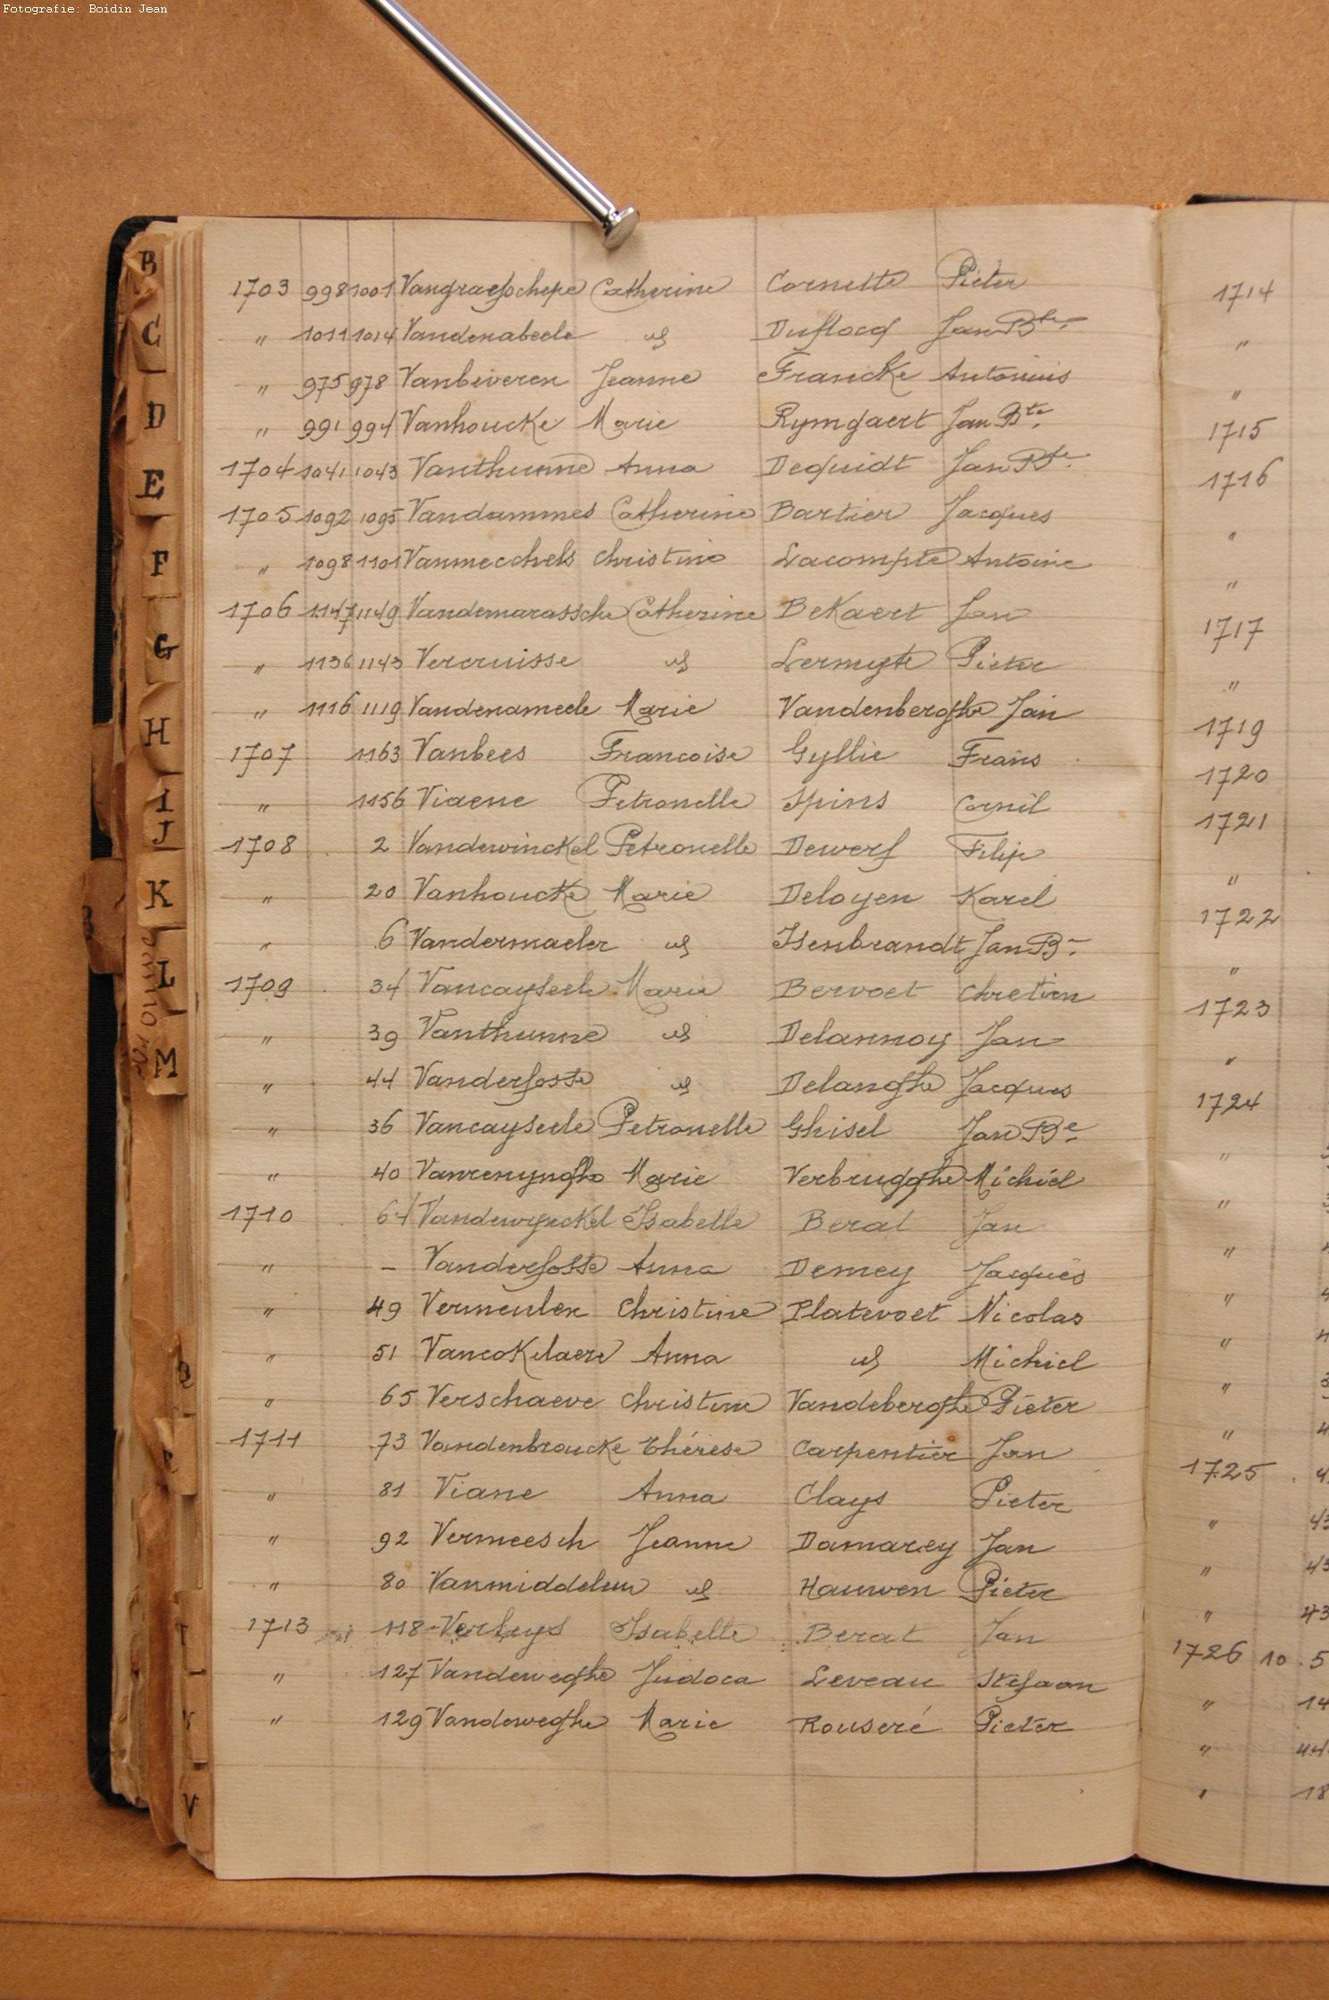 Fotografie: Boidin Jean
1703 998 1001 Vangraefschepe Catherine Cornette Pieter
" 1011 1014 Vandenabeele id Duflocq Jan Bte
" 975 978 Vanbiveren Jeanne Francke Antonius
" 991 994 Vanhoucke Marie Rymgaert Jan Bte
1704 1041 1043 Vanthunne Anna Dequidt Jan Bte
1705 1092 1095 Vandammes Catherine Bartier Jacques
" 1098 1101 Vanmecchels Christine Lacompte Antoine
1706 1147 1149 Vandemarassche Catherine Bekaert Jan
" 1136 1143 Vercruisse id Lermyte Pieter
" 1116 1119 Vandenameele Marie Vandenberghe Jan
1707 1163 Vanbees Francoise Gyllie Frans
" 1156 Viaene Petronelle Spins Cornil
1708 2 Vandewinckel Petronelle Dewerf Filip
" 20 Vanhoucke Marie Deloyen Karel
" 6 Vandermaeler id Isenbrandt Jan B
1709 34 Vancayseele Marie Bervoet Chretien
" 39 Vanthunne id Delannoy Jan
" 44 Vanderfosse id Delanghe Jacques
" 36 Vancayseele Petronelle Ghisel Jan Be
" 40 Vanrenynghe Marie Verbrugghe Michiel
1710 64 Vandewynckel Isabelle Berat Jan
" – Vanderfosse Anna Demey Jacques
" 49 Vermeulen Christine Platevoet Nicolas
" 51 Vancokelaere Anna id Michiel
" 65 Verschaeve Christine Vandeberghe Pieter
1711 73 Vandenbroucke Thérèse Carpentier Jan
" 81 Viane Anna Clays Pieter
" 92 Vermeesch Jeanne Damarey Jan
" 80 Vanmiddelem id Hauwen Pieter
1713 118 Verleys Isabelle Berat Jan
" 127 Vandeweghe Judoca Leveau Stefaan
" 129 Vandeweghe Marie Rouseré Pieter
B
C
D
E
F
G
H
I
J
K
L
M
V
1714
"
"
1715
1716
"
"
1717
"
1719
1720
1721
"
1722
"
1723
"
1724
"
"
"
"
"
"
"
1725
"
"
"
1726 10
"
"
"